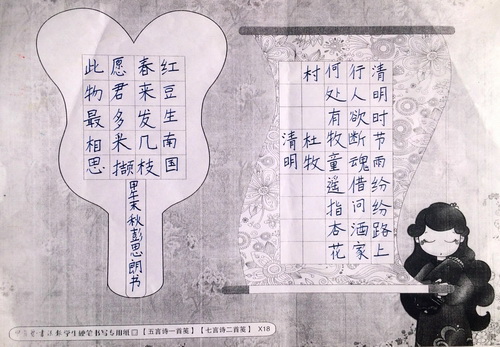 红豆生南国
春来发几枝
愿君多采撷
此物最相思
秋彭思朗书
清明时节雨纷纷路上
行人欲断魂借问酒家
何处有牧童遥指杏花
村 杜牧
清明
学生硬笔书写专用 【五言诗一首笺】【七言诗二首笺】 X18